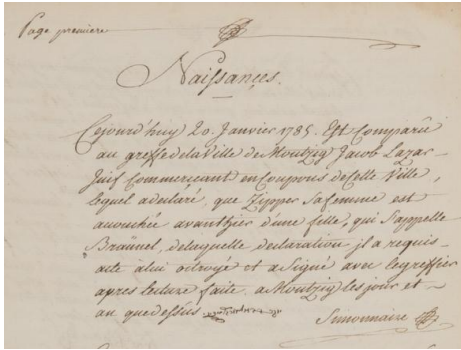 Page premiere
Naissances.
Cejourd'huy 20. Janvier 1785. Est Comparû
au greffe de la Ville de Moutzig Jacob Lazar
Juif Commerçant en Coupons de Celle Ville,
lequel a declaré, que Zipper sa femme est
accouchée avanthier d'une fille, qui S'appelle
Braünel, de laquelle declaration il a requis
acte à lui octroyé et a Signé avec le greffier
apres lecture faite. a Moutzig les jour et
an que dessus.
Simonnaire